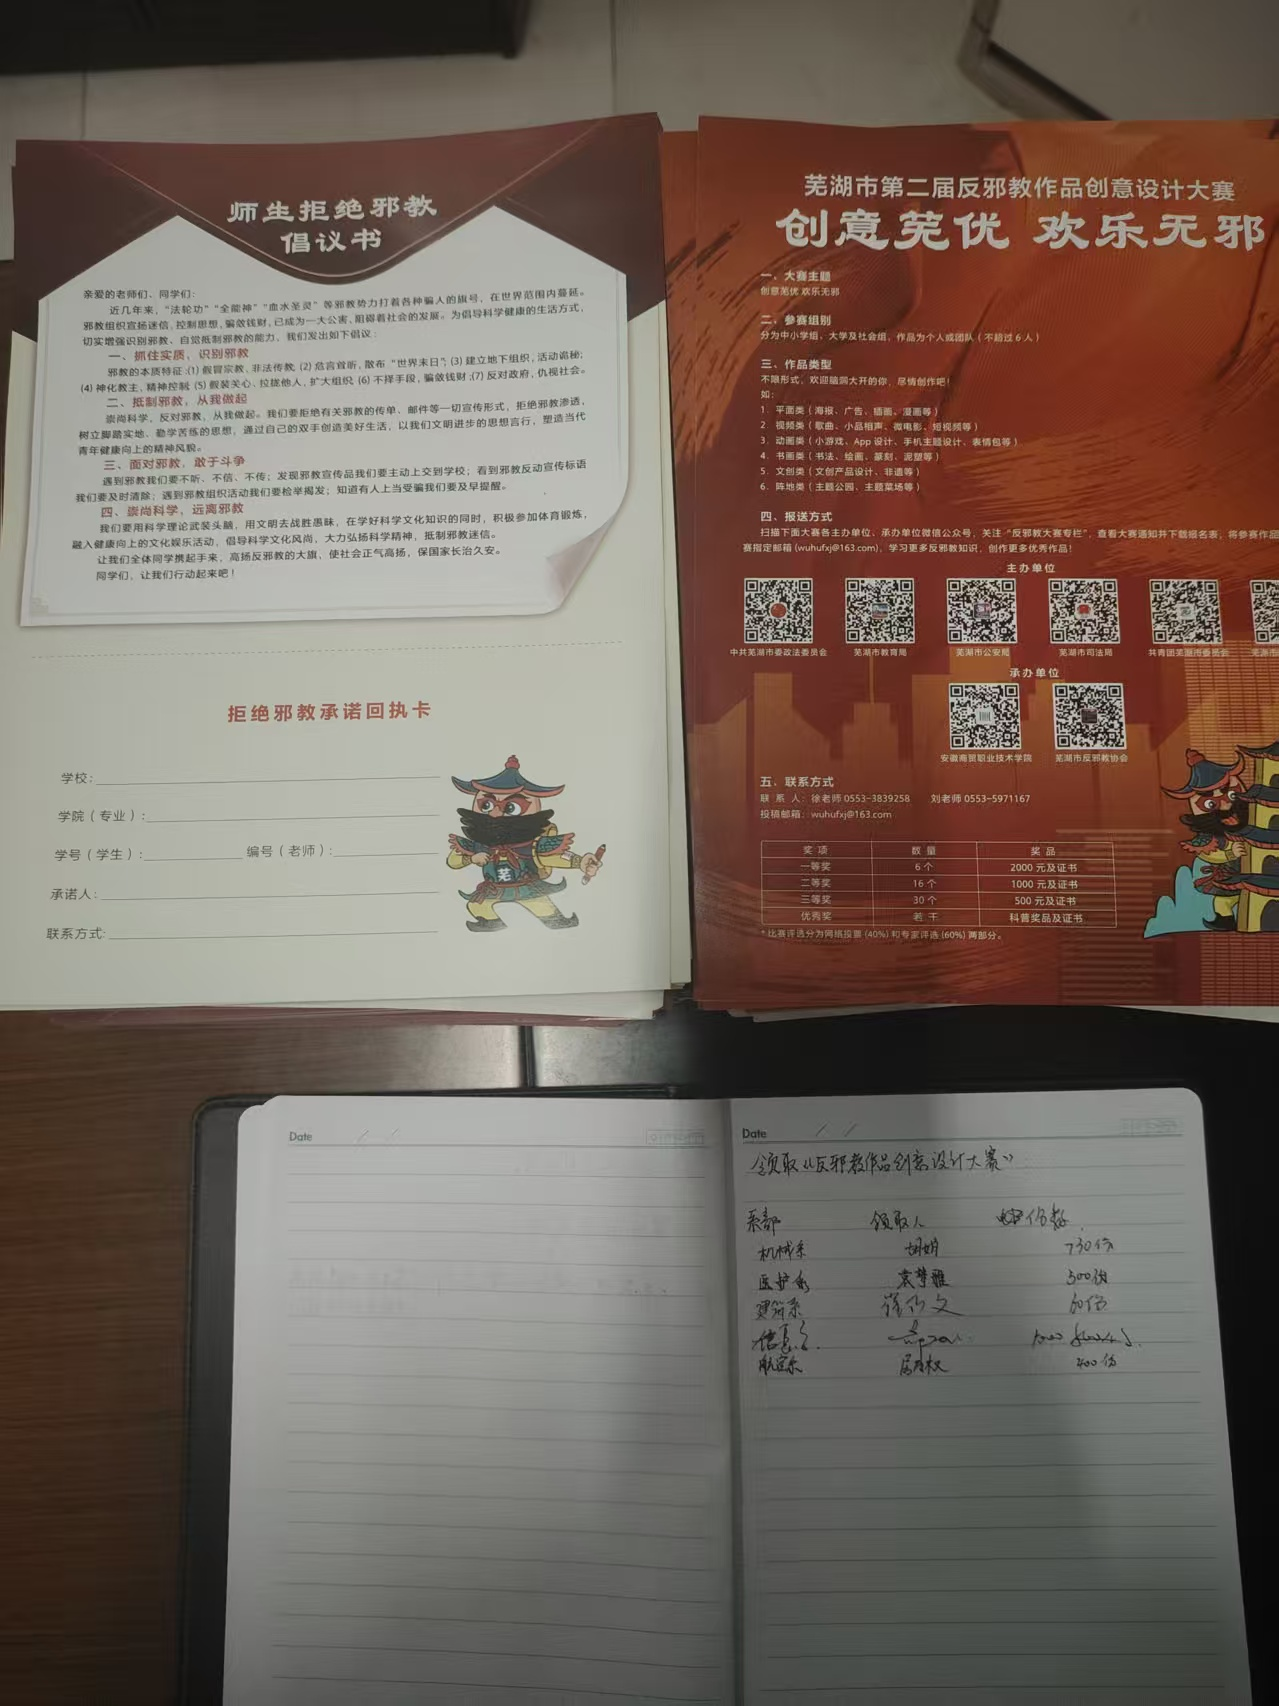 师生拒绝邪教
倡议书
亲爱的老师们、同学们：
近几年来，“法轮功”“全能神”“血水圣灵”等邪教势力打着各种骗人的旗号，在世界范围内蔓延。
邪教组织宣扬迷信，控制思想，骗敛钱财，已成为一大公害，阻碍着社会的发展。为倡导科学健康的生活方式，
切实增强识别邪教、自觉抵制邪教的能力，我们发出如下倡议：
一、抓住实质，识别邪教
邪教的本质特征：(1) 假冒宗教、非法传教；(2) 危言耸听，散布“世界末日”；(3) 建立地下组织，活动诡秘；
(4) 神化教主，精神控制；(5) 假装关心、拉拢他人，扩大组织；(6) 不择手段，骗敛钱财；(7) 反对政府，仇视社会。
二、抵制邪教，从我做起
崇尚科学，反对邪教，从我做起。我们要拒绝有关邪教的传单、邮件等一切宣传形式，拒绝邪教渗透，
树立脚踏实地、勤学苦练的思想，通过自己的双手创造美好生活，以我们文明进步的思想言行，塑造当代
青年健康向上的精神风貌。
三、面对邪教，敢于斗争
遇到邪教我们要不听、不信、不传；发现邪教宣传品我们要主动上交到学校；看到邪教反动宣传标语
我们要及时清除；遇到邪教组织活动我们要检举揭发；知道有人上当受骗我们要及早提醒。
四、崇尚科学、远离邪教
我们要用科学理论武装头脑，用文明去战胜愚昧，在学好科学文化知识的同时，积极参加体育锻炼，
融入健康向上的文化娱乐活动，倡导科学文化风尚，大力弘扬科学精神，抵制邪教迷信。
让我们全体同学携起手来，高扬反邪教的大旗、使社会正气高扬，保国家长治久安。
同学们，让我们行动起来吧！
拒绝邪教承诺回执卡
学校：
学院（专业）：
学号（学生）： 编号（老师）：
承诺人：
联系方式：
芜
芜湖市第二届反邪教作品创意设计大赛
创意芜优 欢乐无邪
一、大赛主题
创意芜优 欢乐无邪
二、参赛组别
分为中小学组、大学及社会组，作品为个人或团队（不超过 6 人）
三、作品类型
不限形式，欢迎脑洞大开的你，尽情创作吧！
如：
1．平面类（海报、广告、插画、漫画等）
2．视频类（歌曲、小品相声、微电影、短视频等）
3．动画类（小游戏、App 设计、手机主题设计、表情包等）
4．书画类（书法、绘画、篆刻、泥塑等）
5．文创类（文创产品设计、非遗等）
6．阵地类（主题公园、主题菜场等）
四、报送方式
扫描下面大赛各主办单位、承办单位微信公众号，关注“反邪教大赛专栏”，查看大赛通知并下载报名表，将参赛作品
赛指定邮箱 (wuhufxj@163.com)，学习更多反邪教知识，创作更多优秀作品！
主办单位
中共芜湖市委政法委员会 芜湖市教育局 芜湖市公安局 芜湖市司法局 共青团芜湖市委员会
承办单位
安徽商贸职业技术学院 芜湖市反邪教协会
五、联系方式
联 系 人：徐老师 0553-3839258 刘老师 0553-5971167
投稿邮箱：wuhufxj@163.com
奖 项 数 量 奖 品
一等奖 6 个 2000 元及证书
二等奖 16 个 1000 元及证书
三等奖 30 个 500 元及证书
优秀奖 若 干 科普奖品及证书
* 比赛评选分为网络投票 (40%) 和专家评选 (60%) 两部分。
Date
Date
领取《反邪教作品创意设计大赛》
系部 领取人 份数
机械系 胡娟 730份
医护系 袁梦雅 500份
建筑系 60份
信息系
航空系 400份